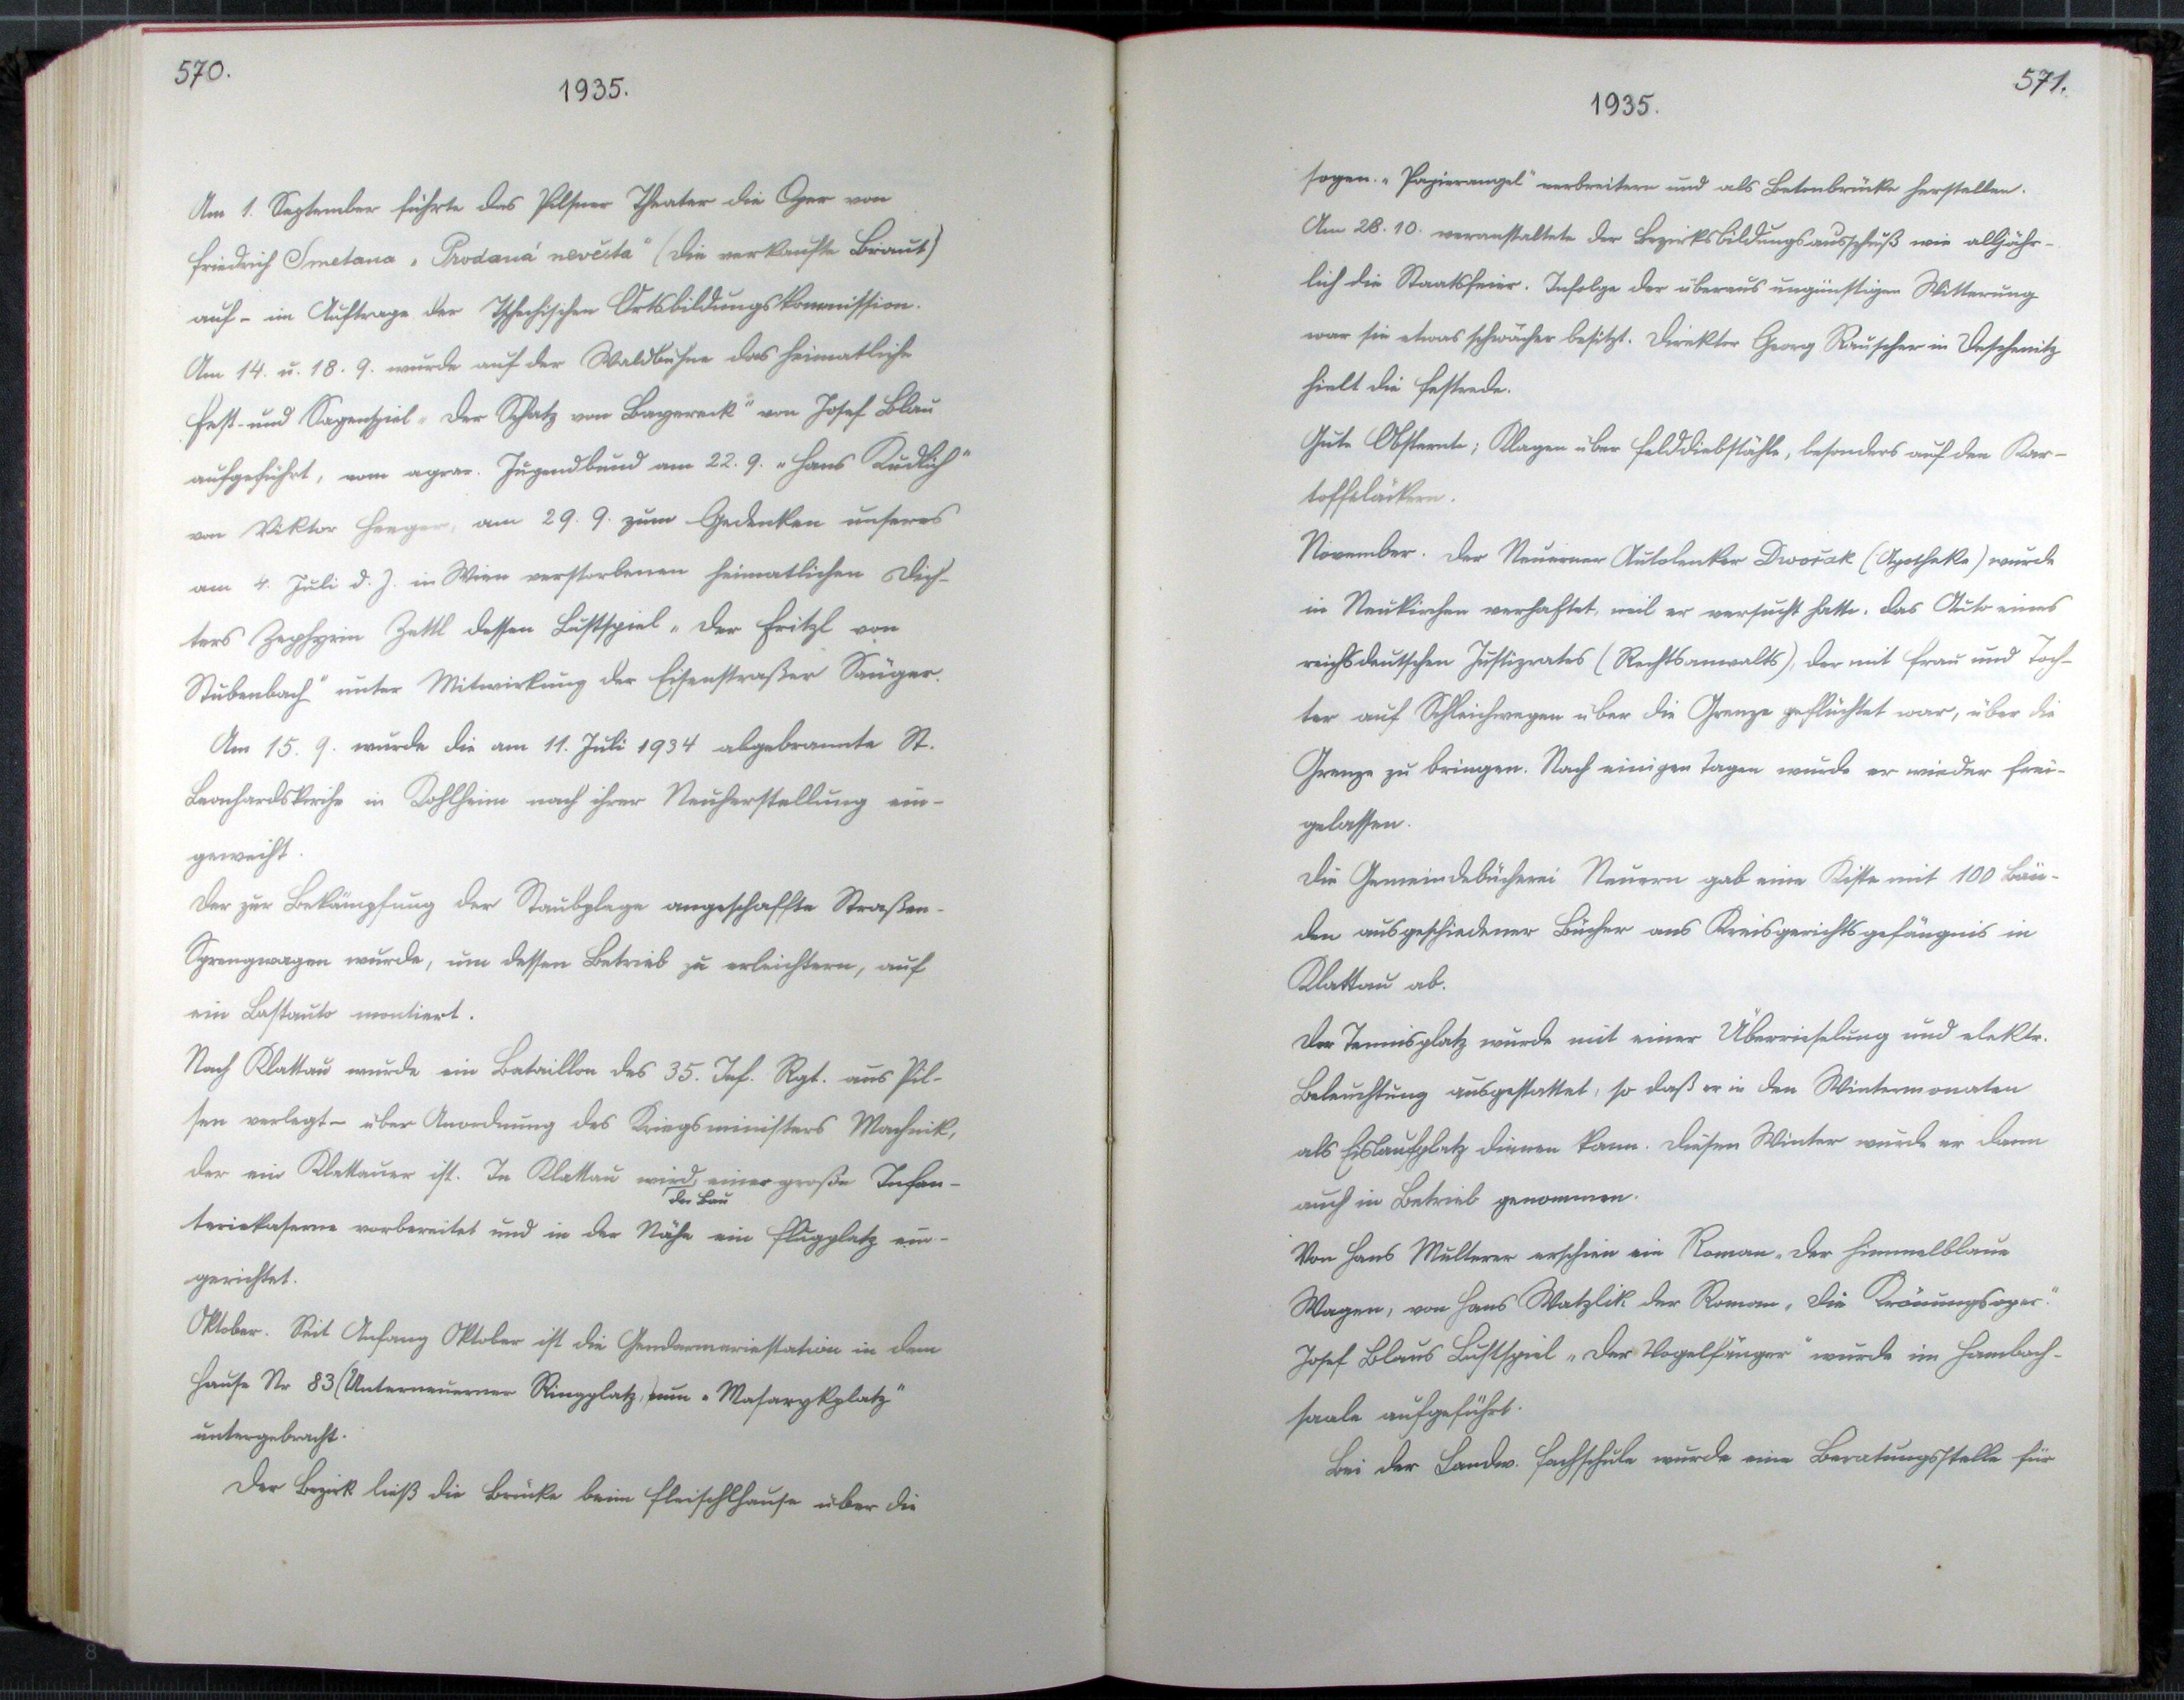 570.
1935.
Am 1. September führte das Pilsner Theater die Oper von
Friedrich Smetana „Prodaná nevěsta“ (Die verkaufte Braut)
auf – im Auftrage der Tschechischen Ortsbildungskommission.
Am 14. u. 18. 9. wurde auf der Waldbühne das heimatliche
Fest- und Sagenspiel „Der Schatz von Bayereck“ von Josef Blau
aufgeführt, vom agrar. Jugendbund am 22. 9. „Hans Kudlich“
von Viktor Heeger, am 29. 9. zum Gedenken unseres
am 4. Juli d. J. in Wien verstorbenen heimatlichen Dich-
ters Zephyrin Zettl dessen Lustspiel „Der Fritzl von
Stubenbach“ unter Mitwirkung der Eisenstraßer Sänger.
Am 15. 9. wurde die am 11. Juli 1934 abgebrannte St.
Leonhardskirche in Kohlheim nach ihrer Neuherstellung ein-
geweiht.
Der zur Bekämpfung der Staubplage angeschaffte Straßen-
Sprengwagen wurde, um dessen Betrieb zu erleichtern, auf
ein Lastauto montiert.
Nach Klattau wurde ein Bataillon des 35. Inf. Rgt. aus Pil-
sen verlegt – über Anordnung des Kriegsministers Machnik,
der ein Klattauer ist. In Klattau wird einer große Infan-
der Bau
teriekaserne vorbereitet und in der Nähe ein Flugplatz ein-
gerichtet.
Oktober. Seit Anfang Oktober ist die Gendarmeriestation in dem
Hause Nr 83 (Unterneuerner Ringplatz,) nun „Masarykplatz“
untergebracht.
Der Bezirk ließ die Brücke beim Fleischlhause über die
571.
1935.
sogen. „Papierangel“ verbreitern und als Betonbrücke herstellen.
Am 28. 10. veranstaltete der Bezirksbildungsausschuß wie alljähr-
lich die Staatsfeier. Infolge der überaus ungünstigen Witterung
war sie etwas schwächer besitzt. Direktor Georg Rauscher in Deschenitz
hielt die Festrede.
Gute Obsternte; Klagen über Felddiebstähle, besonders auf den Kar-
toffeläckern.
November. Der Neuerner Autolenker Dwořak (Apotheke) wurde
in Neukirchen verhaftet, weil er versucht hatte, das Auto eines
reichsdeutschen Justizrates (Rechtsanwalts), der mit Frau und Toch-
ter auf Schleichwegen über die Grenze geflüchtet war, über die
Grenze zu bringen. Nach einigen Tagen wurde er wieder frei-
gelassen.
Die Gemeindebücherei Neuern gab eine Kiste mit 100 Bän-
den ausgeschiedener Bücher ans Kreisgerichtsgefängnis in
Klattau ab.
Der Tennisplatz wurde mit einer Überrieselung und elektr.
Beleuchtung ausgestattet, so daß er in den Wintermonaten
als Eislaufplatz dienen kann. Diesen Winter wurde er dann
auch in Betrieb genommen.
Von Hans Multerer erschien ein Roman „Der himmelblaue
Wagen, von Hans Watzlik der Roman „Die Krönungsoper.“
Josef Blaus Lustspiel „Der Vogelfänger“ wurde im Hambach-
saale aufgeführt.
Bei der Landw. Fachschule wurde eine Beratungsstelle für
8